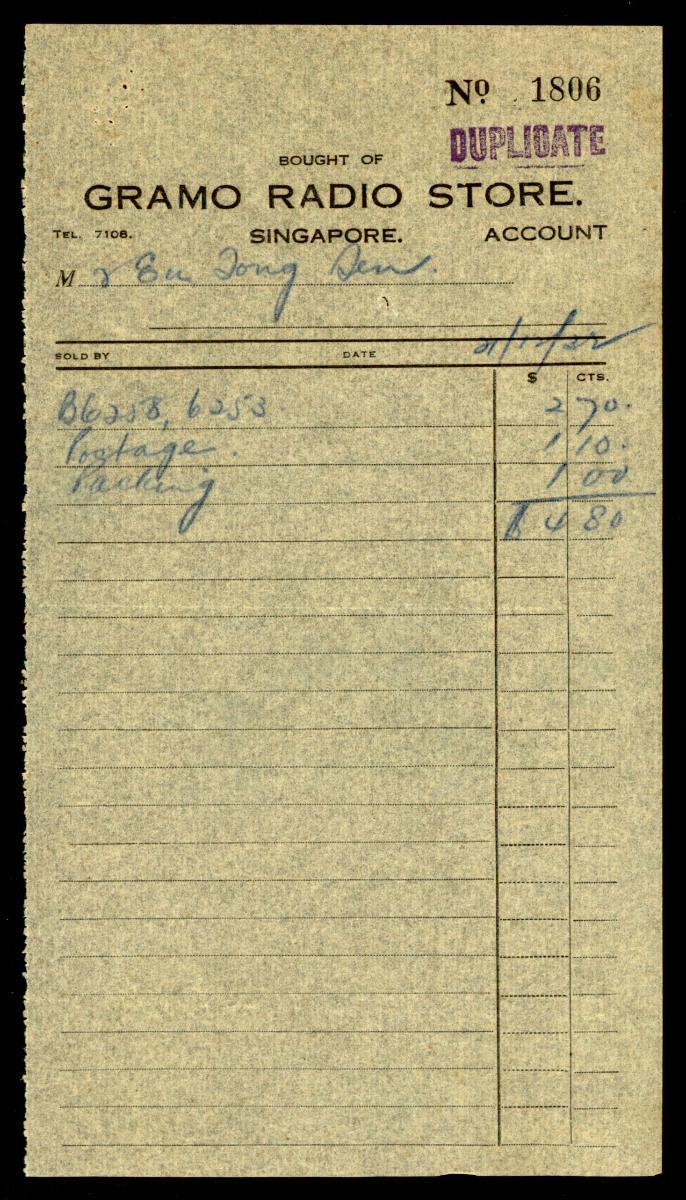 Nº 1806
DUPLICATE
BOUGHT OF
GRAMO RADIO STORE.
TEL. 7108. SINGAPORE. ACCOUNT
Mr Eu Tong Sen.
SOLD BY DATE 21/12/32
$ CTS.
B6258, 6253 2 70.
Postage. 1 10.
Packing 1 00
$ 4 80